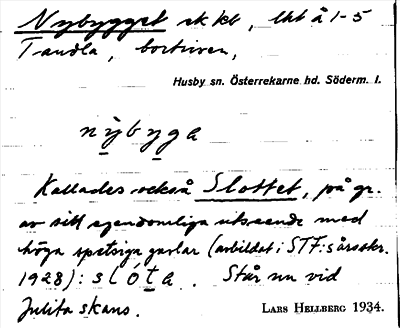 Nybygget ek kb, lht å 1-5
Tandla, bortriven,
Husby sn. Österrekarne hd. Söderm. l.
nybyga
Kallades också Slottet, på gr.
av sitt egendomliga utseende med
höga spetsiga gavlar (avbildat i STF:s årsskr.
1928): slóta. Står nu vid
Julita skans.
LARS HELLBERG 1934.